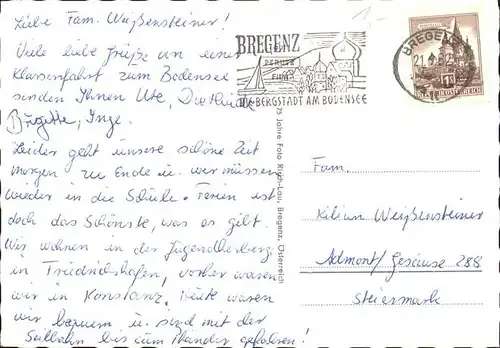 Liebe Fam. Weißensteiner!
Viele liebe Grüße von einer
Klassenfahrt zum Bodensee
senden Ihnen Ute, Dietlinde
Brigitte, Inge.
Leider geht unsere schöne Zeit
morgen zu Ende u. wir müssen
wieder in die Schule. Ferien ist
doch das Schönste, was es gibt.
Wir wohnen in der Jugendherberge
in Friedrichshafen, vorher waren
wir in Konstanz. Heute waren
wir u. sind mit der
Seilbahn bis zum Pfänder gefahren!
75 Jahre Foto Risch-Lau, Bregenz, Österreich
BREGENZ
PERUTZ
FILM
DIE BERGSTADT AM BODENSEE
BREGENZ
21.
1S
REPUBLIK ÖSTERREICH
1-
Fam.
Kilian Weißensteiner
Admont/Gesäuse 288
Steiermark